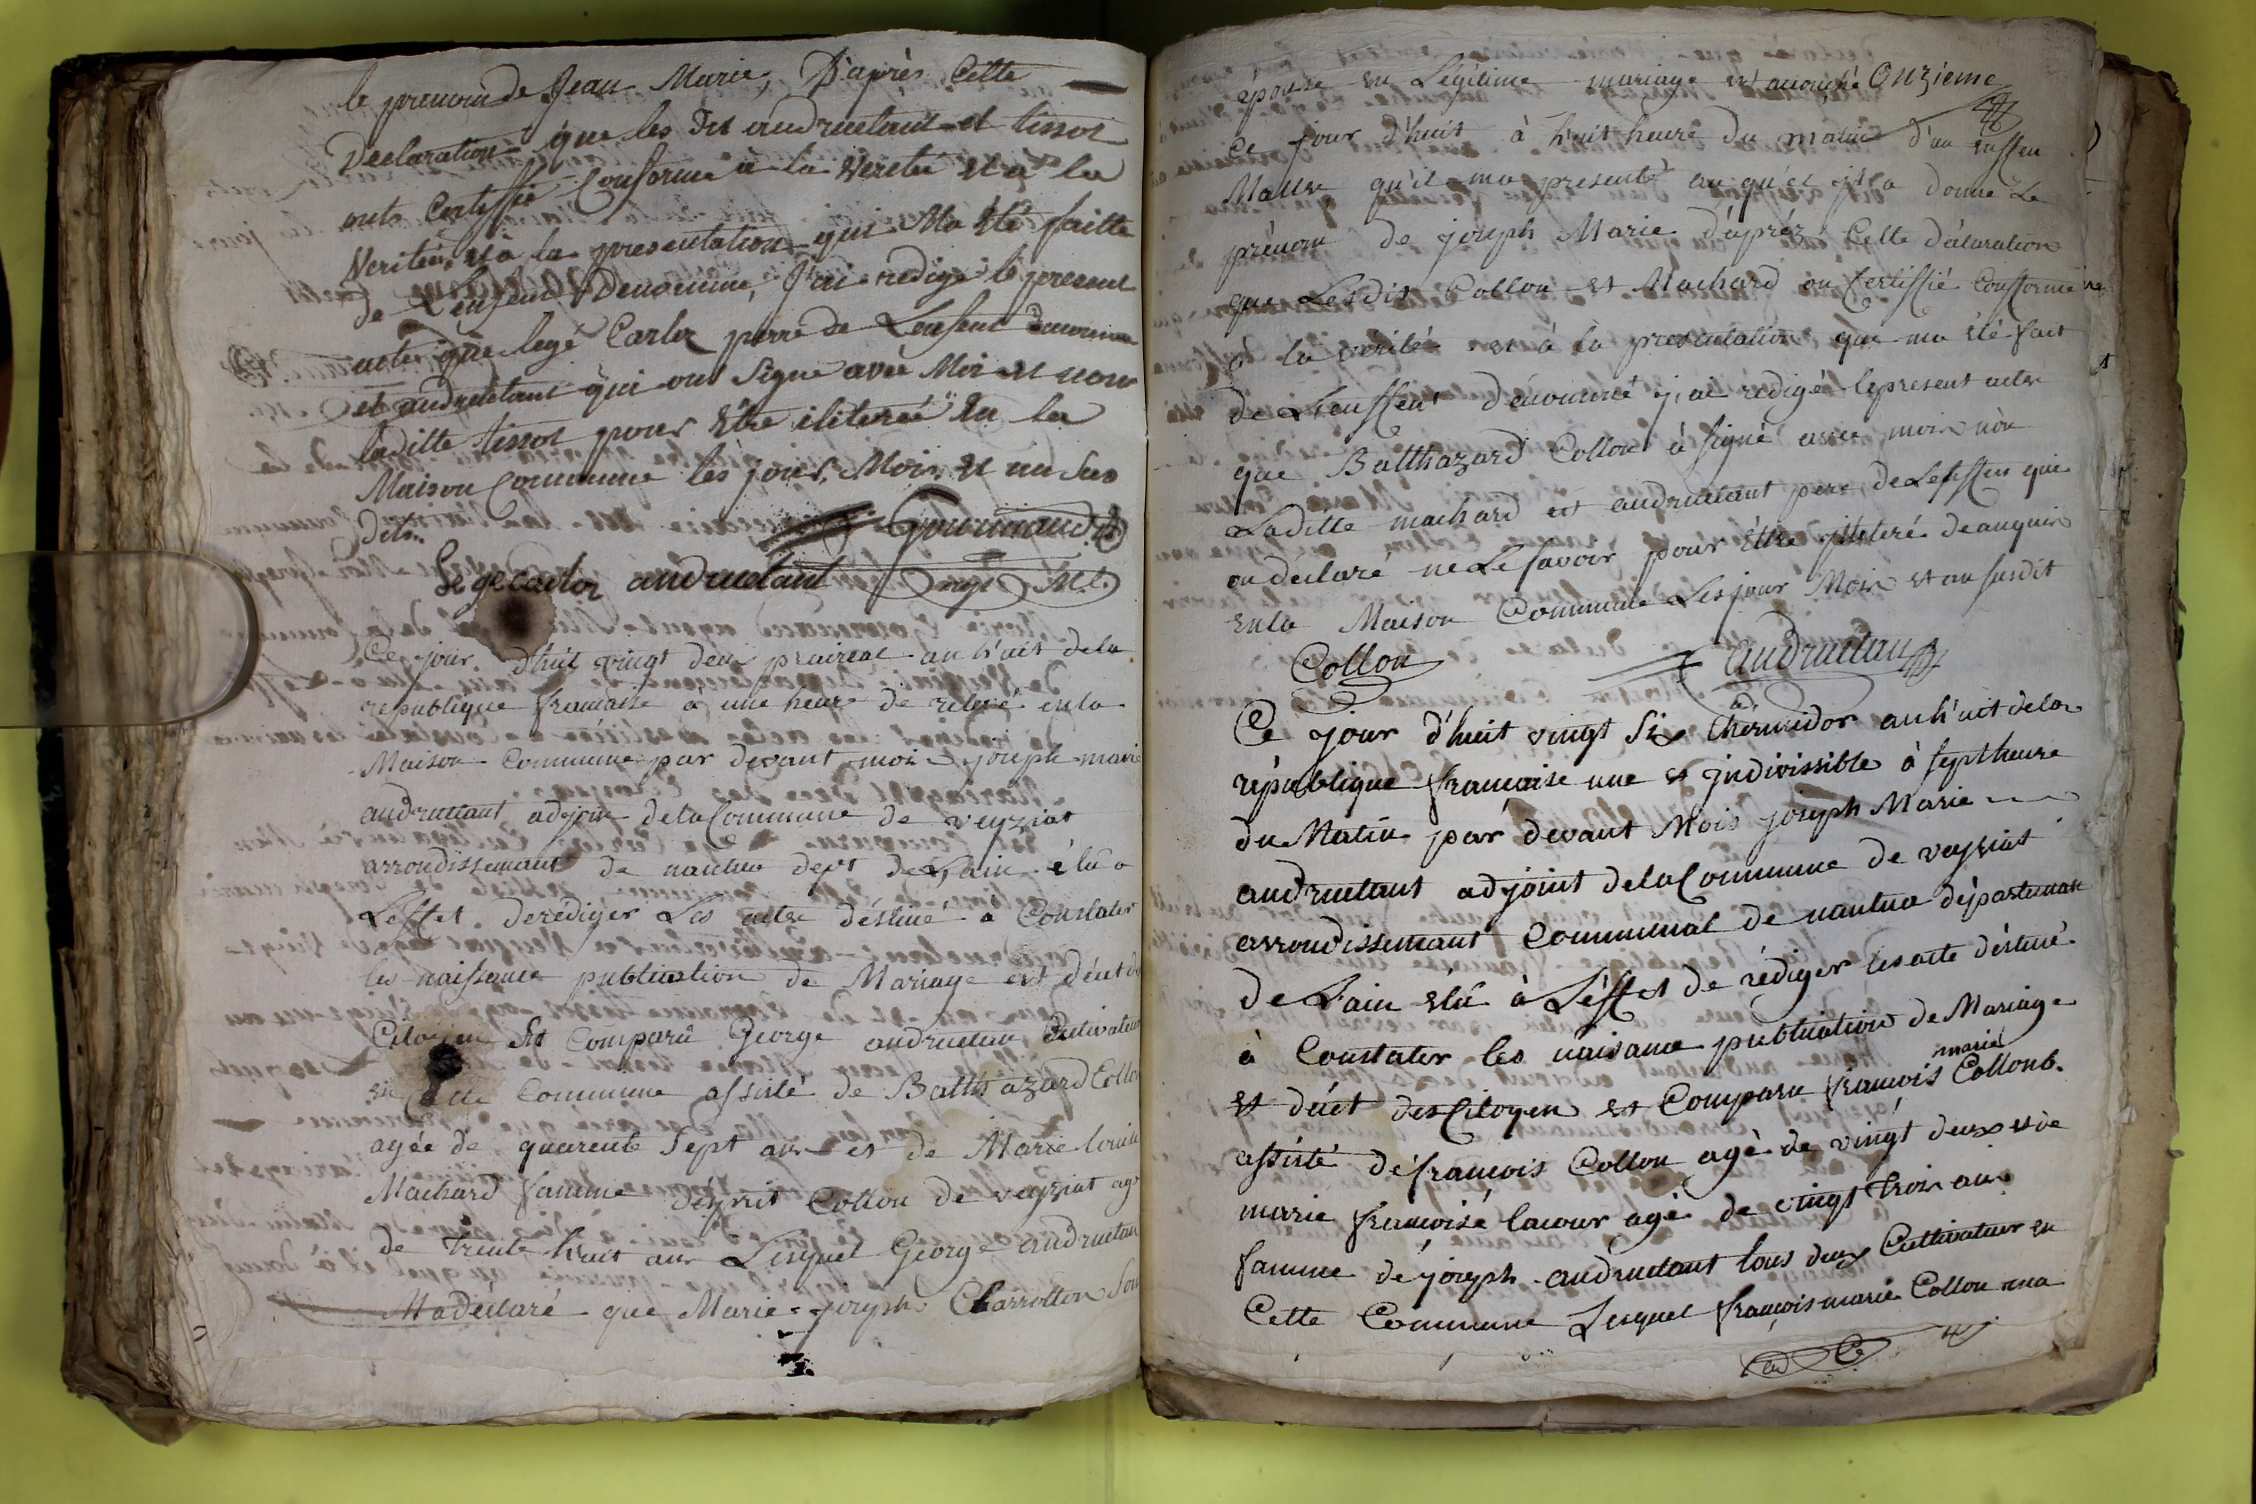 le prenom de Jean Marie, D'après Cette
Declaration que les Dit andruetant et tissot
onts Certiffié Conforme a la Verité et a la
Verité, et à la presentation qui Ma été faitte
de L'enfent Denommé, J'ai redigé le present
acte que legé Carloz perre de Lenfent denommé
et andruétant qui on Signé avec Moi et non
laditte tissot pour Etre iliteré en la
Maison Commune les jour, Mois et an Sus
Dets.
Gourmand
Legecarloz andruetant M.e
Ce jour d'huit vingt deu prairéal an h'uit de la
republique francaise a une heure de relevé en la
Maison Commune par devant moi joseph marie
andruetant adjoin de la Commune de veyziat
arrondissemant de nantua dept de Lain élu a
Leffet derédiger Les acte déstiné a Constater
les naissance publication de Mariage et décet de
Citoyen Est Comparu George andruetan Cultivateur
en Cette Commune assisté de Balthazard Collon
agée de quarente Sept ans et de Marie louise
Machard famme désprit Collon de veyziat agé
de trente huit ans Lesquel George andruetan
Ma déclaré que Marie joseph Charrotton Son
épouse en Legitime mariage est acouché Onzieme
Ce jour d'huit à h'uit heure du matin d'un enffen
Malle qu'il ma presenté au qu'el jl a donné Le
prénom de joseph Marie d'apréz Cette déclaration
que Lesdit Collon et Machard on Certiffié Confforme
à la verité et à la presentation que ma été fait
de Lenffent dénommé j'ai redigé le present acte
que Balthazard Collon à signé avec moi non
Laditte machard et andruetant pere de Lenffen qui
on declaré ne Le savoir pour être jlleteré de anquir
en la Maison Commune Les jour Mois et an susdit
Collon andruetan
Ce jour d'huit vingt Six thérmidor an h'uit de la
république francaise une et jndivissible à sept heure
du Matin par devant Mois joseph Marie
andruetant adjoint de la Commune de veyziat
arrondissemant Communal de nantua départemant
de Lain élu à Léffet de rédiger les acte déstiné
à Constater les naisance publication de Mariage
et décét des Citoyen est Comparu francois marie Collomb.
assisté de francois Collon agé de vingt deux et de
marie francoise lacour agé de vingt trois ans
famme de joseph andruetant tous deux Cultivateur en
Cette Commune Lesquel francois marie Collon ma